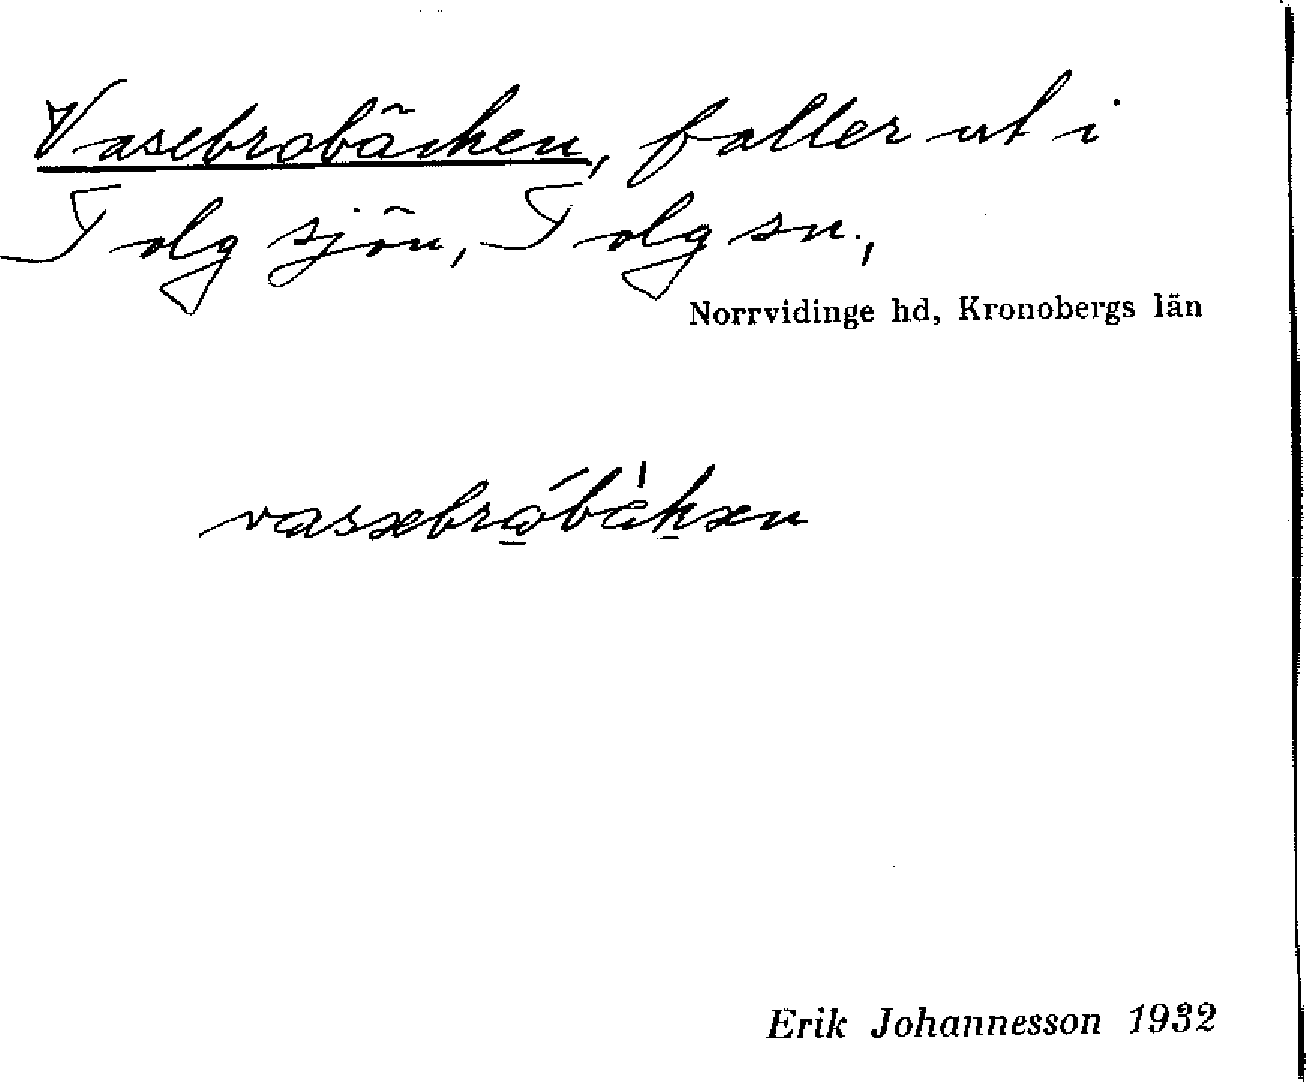 Vasebrobäcken, faller ut i
Tolg sjön, Tolg sn.,
Norrvidinge hd, Kronobergs län
Erik Johannesson 1932